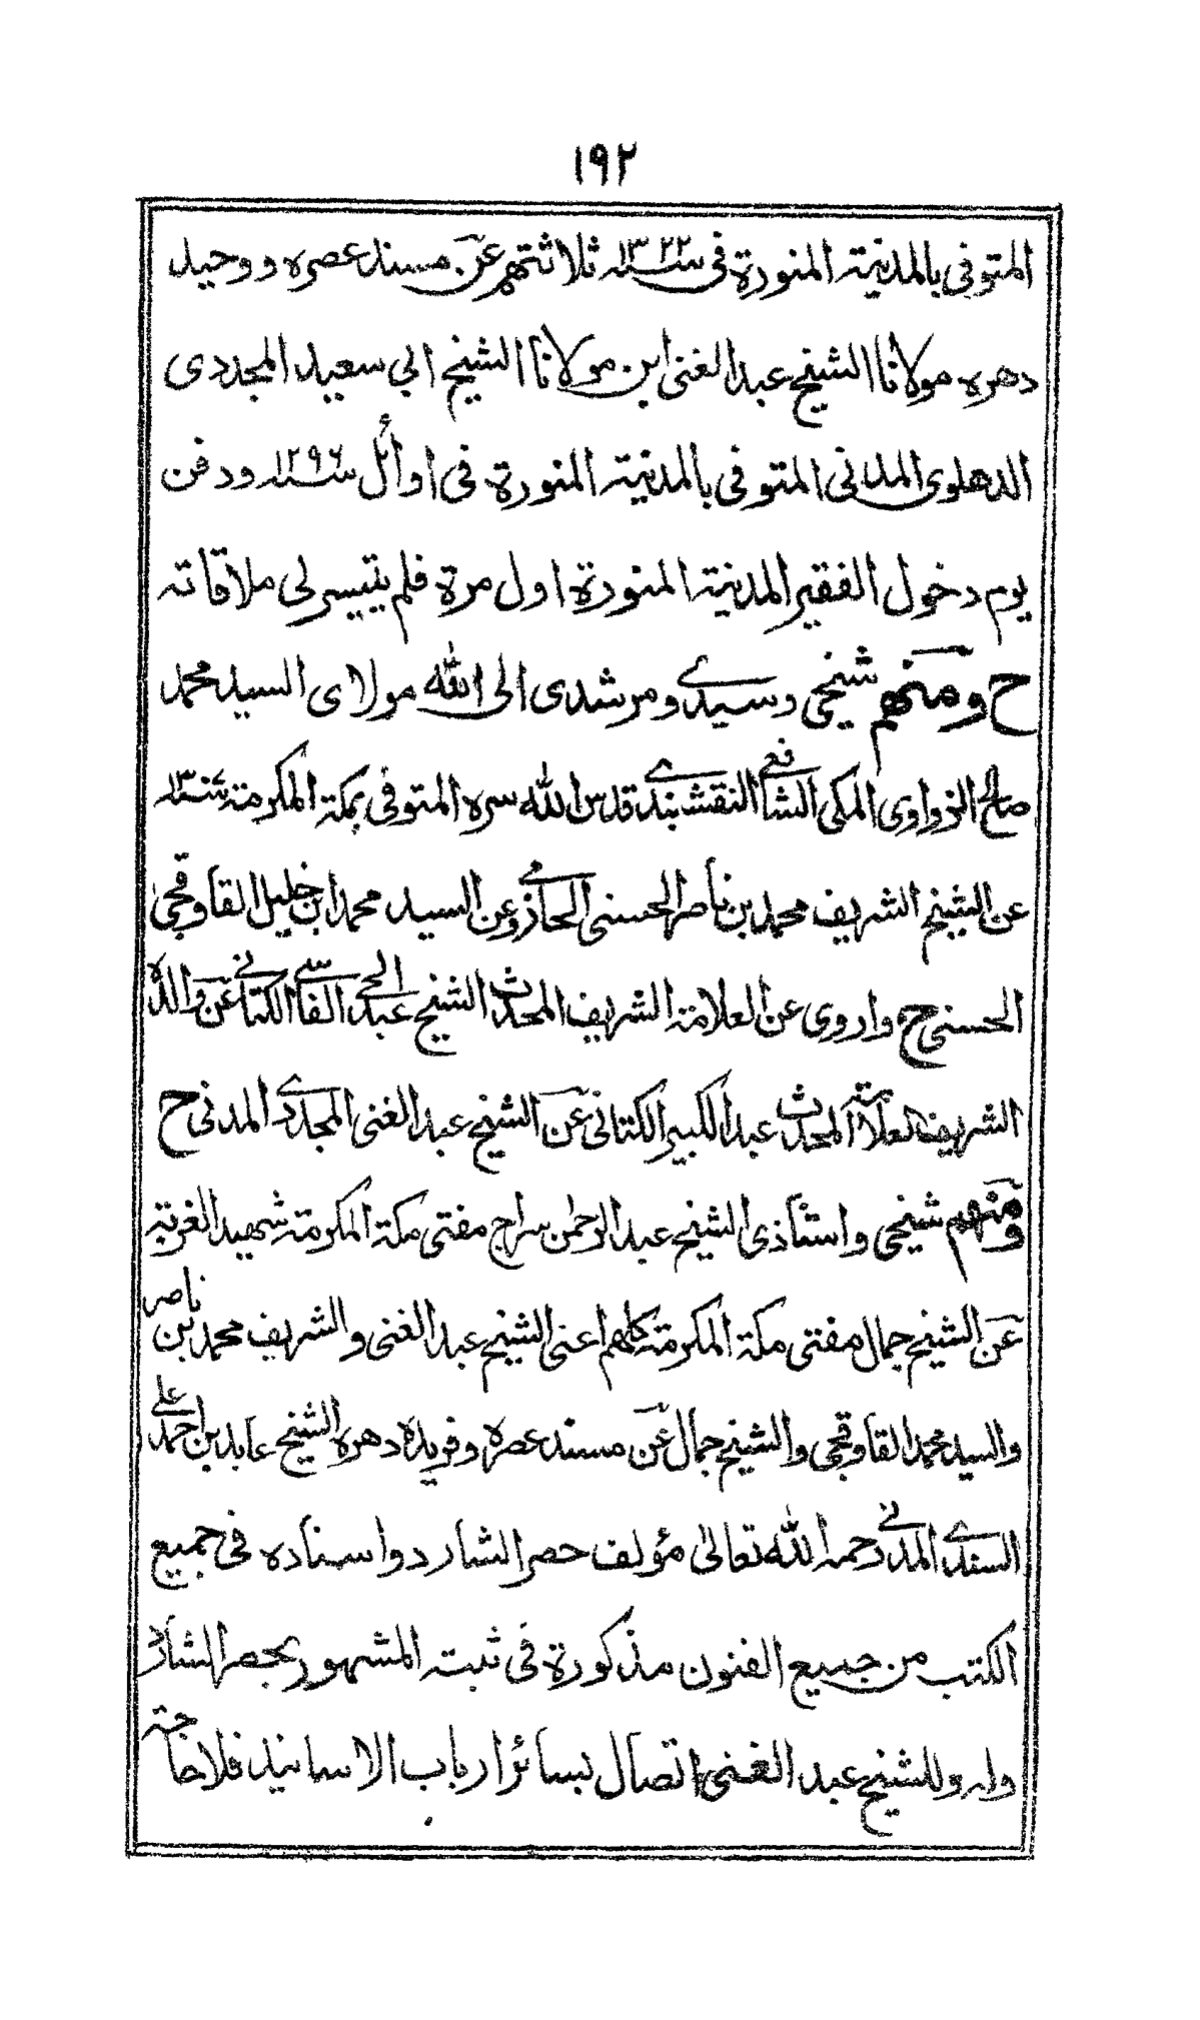 ١٩٢
المتوفى بالمدينة المنورة في سنة ١٣٢٢ ثلاثتهم عن مسند عصره ووحيد
دهره مولانا الشيخ عبد الغنى ابن مولانا الشيخ ابي سعيد المجددى
الدهلوى المدانى المتوفى بالمدينة المنورة فى اوائل سنة ١٢٩٦ ودفن
يوم دخول الفقير المدينة المنورة اول مرة فلم يتيسر لى ملاقاته
ح ومنهم شيخى وسيدى ومرشدى الى الله مولاى السيد محمد
صالح الزواوى المكى الشافعى النقشبندى قدس الله سره المتوفى بمكة المكرمة سنة
عن الشيخ الشريف محمد بن ناصر الحسنى الحازمى وعن السيد محمد ابن خليل القاوقجى
الحسنى ح واروى عن العلامة الشريف المحدث الشيخ عبد الحى الفاسى الكتانى عن والده
الشريف العلامة المحدث عبد الكبير الكتانى عن الشيخ عبد الغنى المجددى المدنى ح
ومنهم شيخى واستاذى الشيخ عبد الرحمن سراج مفتى مكة المكرمة شهيد الغربة
عن الشيخ جمال مفتى مكة المكرمة كلهم اعنى الشيخ عبد الغنى والشريف محمد بن ناصر
والسيد محمد القاوقجى والشيخ جمال عن مسند عصره وفريده دهره الشيخ عابد بن احمد على
السندى المدنى رحمه الله تعالى مؤلف حصر الشارد واسناده فى جميع
الكتب من جميع الفنون مذكورة فى ثبته المشهور بحصر الشارد
وله وللشيخ عبد الغنى اتصال بسائر ارباب الاسانيد فلا حاجة